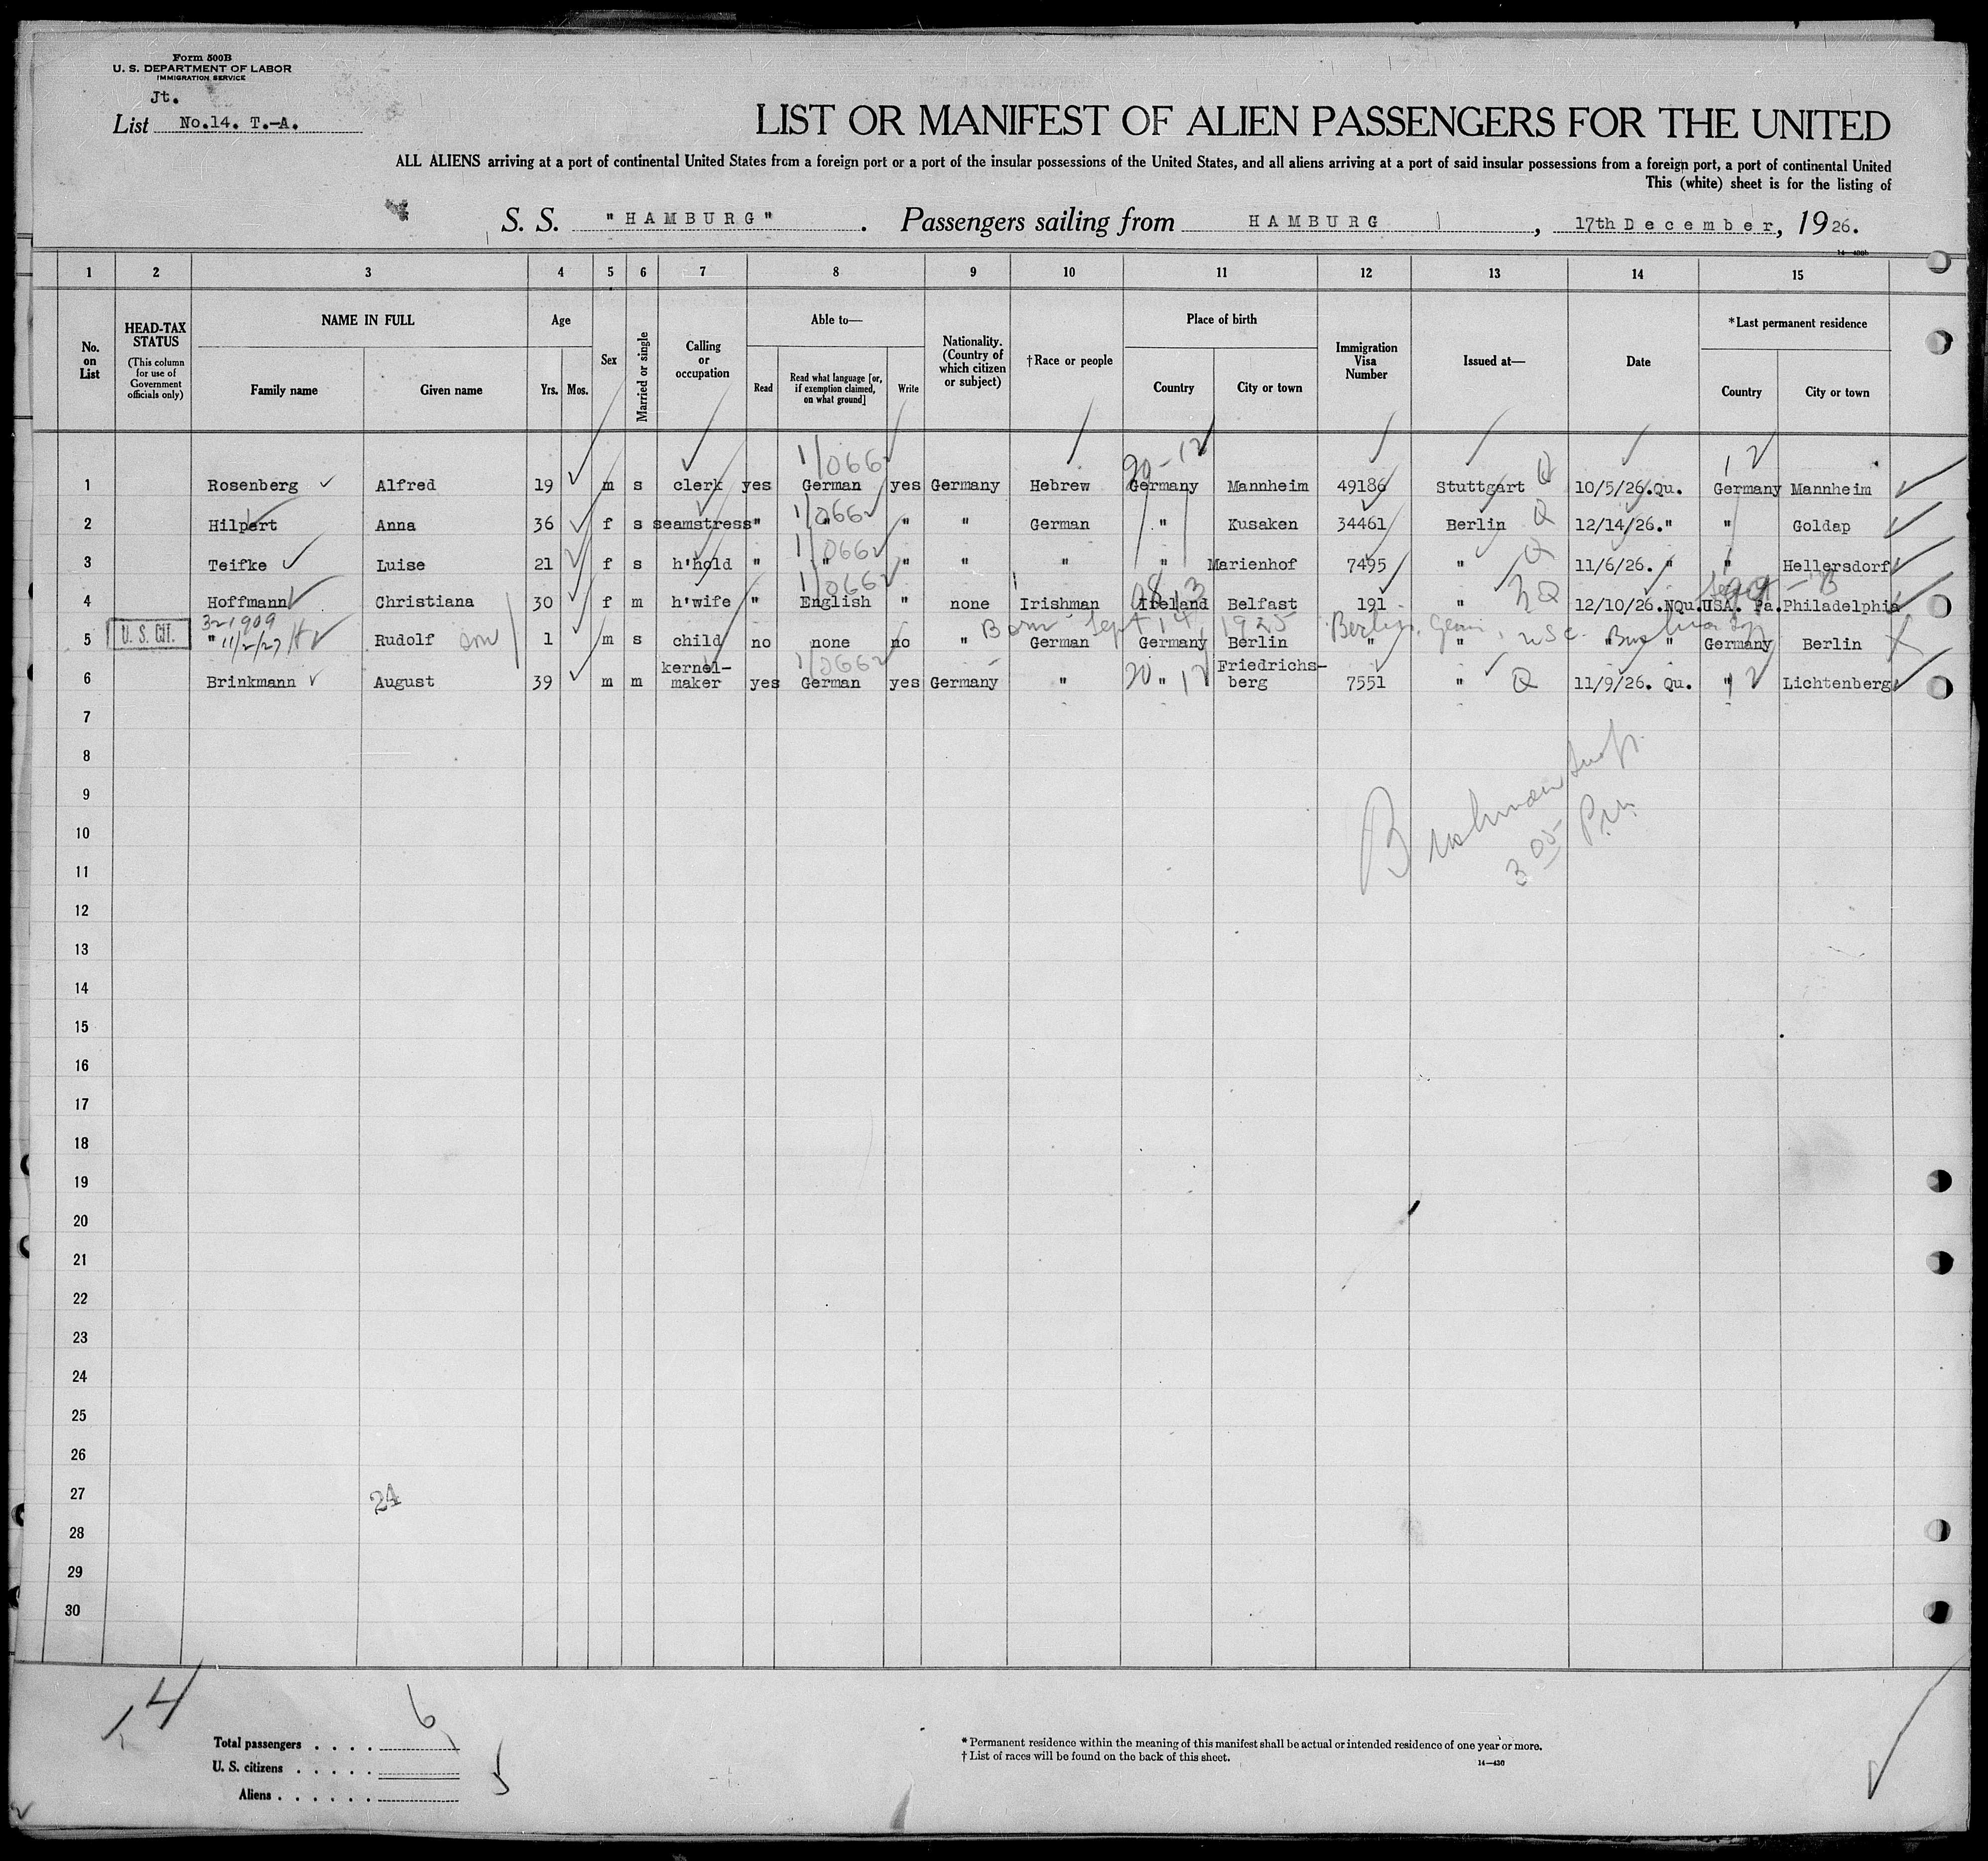 Form 500B
U. S. DEPARTMENT OF LABOR
IMMIGRATION SERVICE
Jt.
List No.14. T.-A.
LIST OR MANIFEST OF ALIEN PASSENGERS FOR THE UNITED
ALL ALIENS arriving at a port of continental United States from a foreign port or a port of the insular possessions of the United States, and all aliens arriving at a port of said insular possessions from a foreign port, a port of continental United
This (white) sheet is for the listing of
S. S. "HAMBURG". Passengers sailing from HAMBURG, 17th December, 1926.
1 2 3 4 5 6 7 8 9 10 11 12 13 14 15
No. on List
HEAD-TAX STATUS
(This column for use of Government officials only)
NAME IN FULL
Family name
Given name
Age
Yrs. Mos.
Sex
Married or single
Calling or occupation
Able to—
Read
Read what language [or, if exemption claimed, on what ground]
Write
Nationality. (Country of which citizen or subject)
†Race or people
Place of birth
Country
City or town
Immigration Visa Number
Issued at—
Date
*Last permanent residence
Country
City or town
1/066 20-12 12
1 Rosenberg Alfred 19 m s clerk yes German yes Germany Hebrew Germany Mannheim 49186 Stuttgart Q 10/5/26.Qu. Germany Mannheim
1/066
2 Hilpert Anna 36 f s seamstress " " " " German " Kusaken 34461 Berlin Q 12/14/26." " Goldap
1/066
3 Teifke Luise 21 f s h'hold " " " " " " Marienhof 7495 " Q 11/6/26. " " Hellersdorf
1/066
4 Hoffmann Christiana 30 f m h'wife " English " none Irishman Ireland Belfast 191 " Q 12/10/26.NQu. USA. Pa. Philadelphia
U. S. CIT. 11/2/27 Born Sept 14, 1925 Berlin, Germ, USC.
5 " Rudolf 1 m s child no none no " German Germany Berlin " " " " Germany Berlin
1/066 20 12 12
6 Brinkmann August 39 m m kernel-maker yes German yes Germany " " Friedrichs-berg 7551 " Q 11/9/26. Qu. " Lichtenberg
7
8
9
10
11
12
13
14
15
16
17
18
19
20
21
22
23
24
25
26
27
28
29
30
3 05 P.M.
24
14
Total passengers . . . . 6
U. S. citizens . . . . .
Aliens . . . . . . 5
* Permanent residence within the meaning of this manifest shall be actual or intended residence of one year or more.
† List of races will be found on the back of this sheet.
14—430